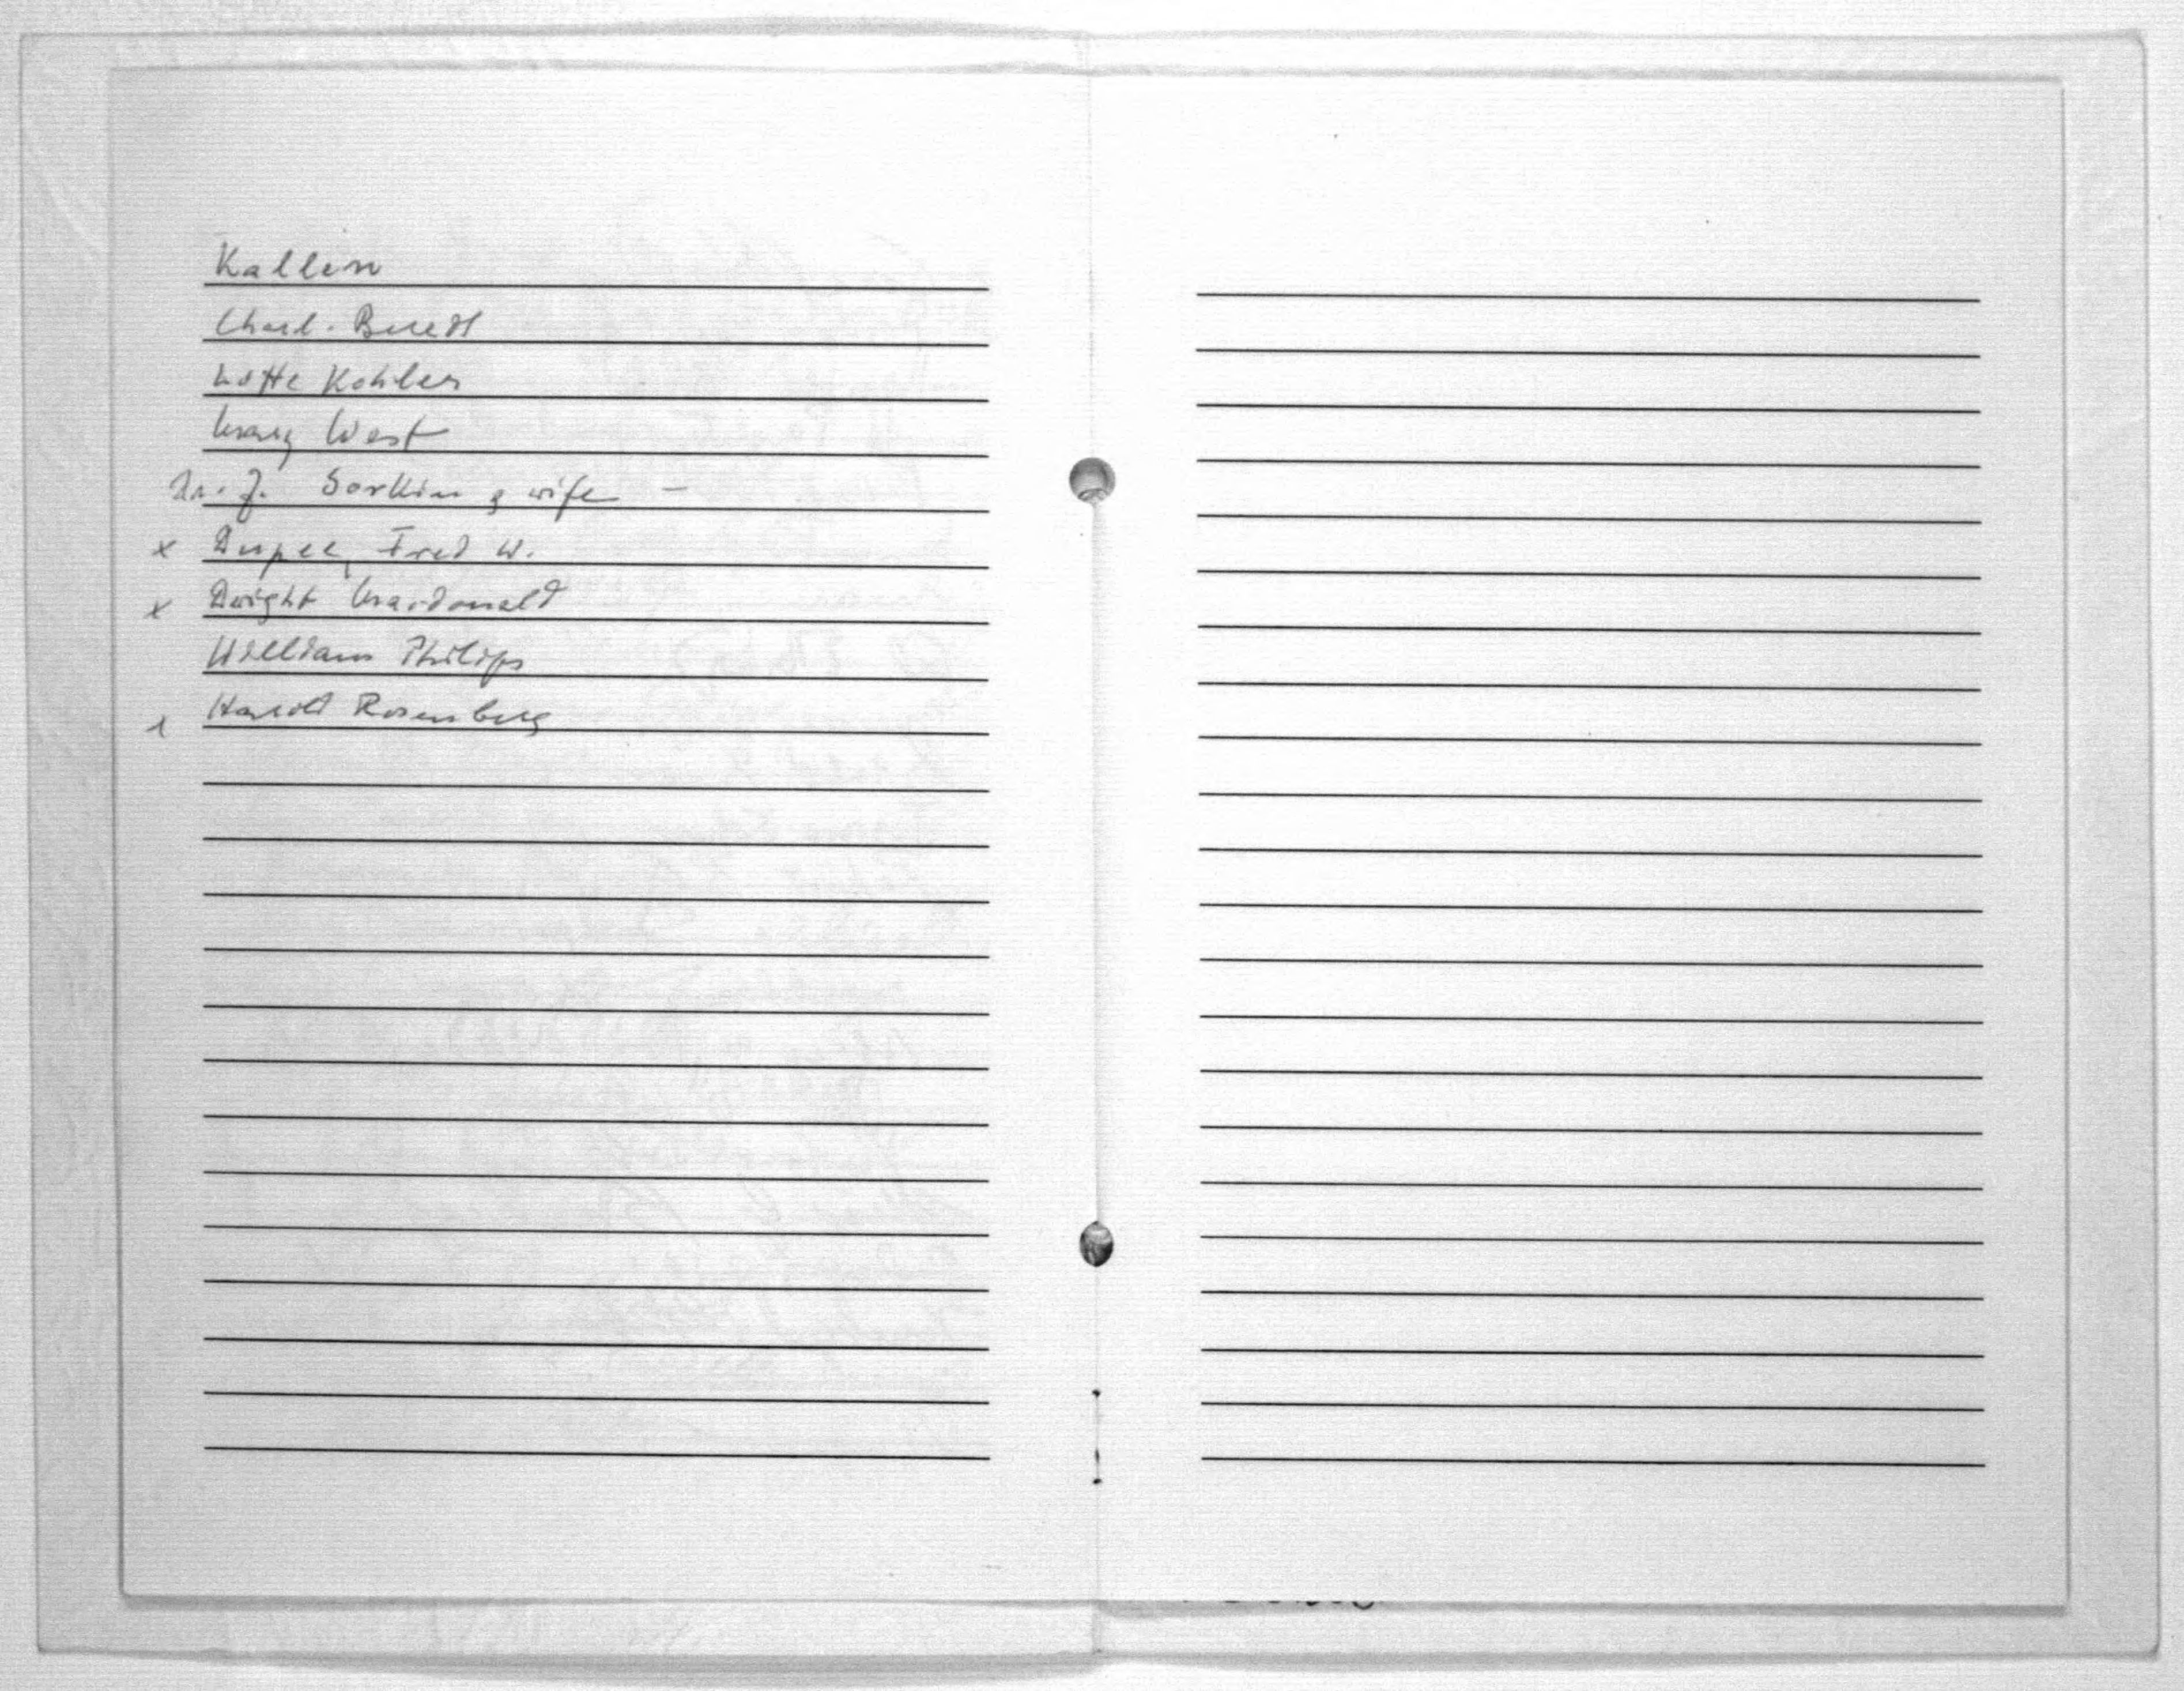 Kallen
Charl. Beradt
Lotte Kohler
Mary West
Dr. J. Sorkin & wife –
x Dupee, Fred W.
x Dwight Macdonald
William Philips
x Harold Rosenberg